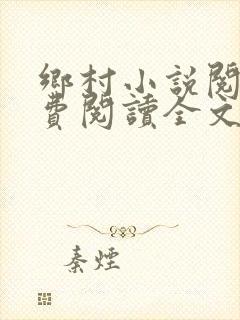 鄉村小說閱
費閱讀全文
秦煙